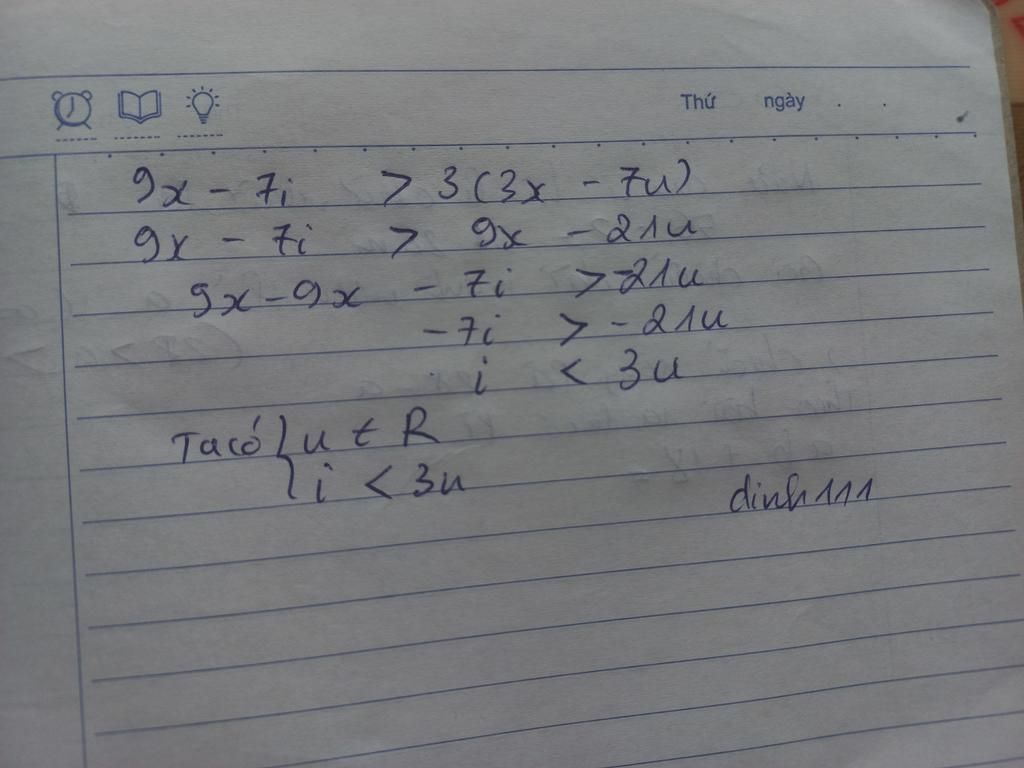 Thứ ngày . .
9x - 7i > 3(3x - 7u)
9x - 7i > 9x - 21u
9x - 9x - 7i > -21u
-7i > -21u
i < 3u
Ta có { u ∈ R
i < 3u
dinh111